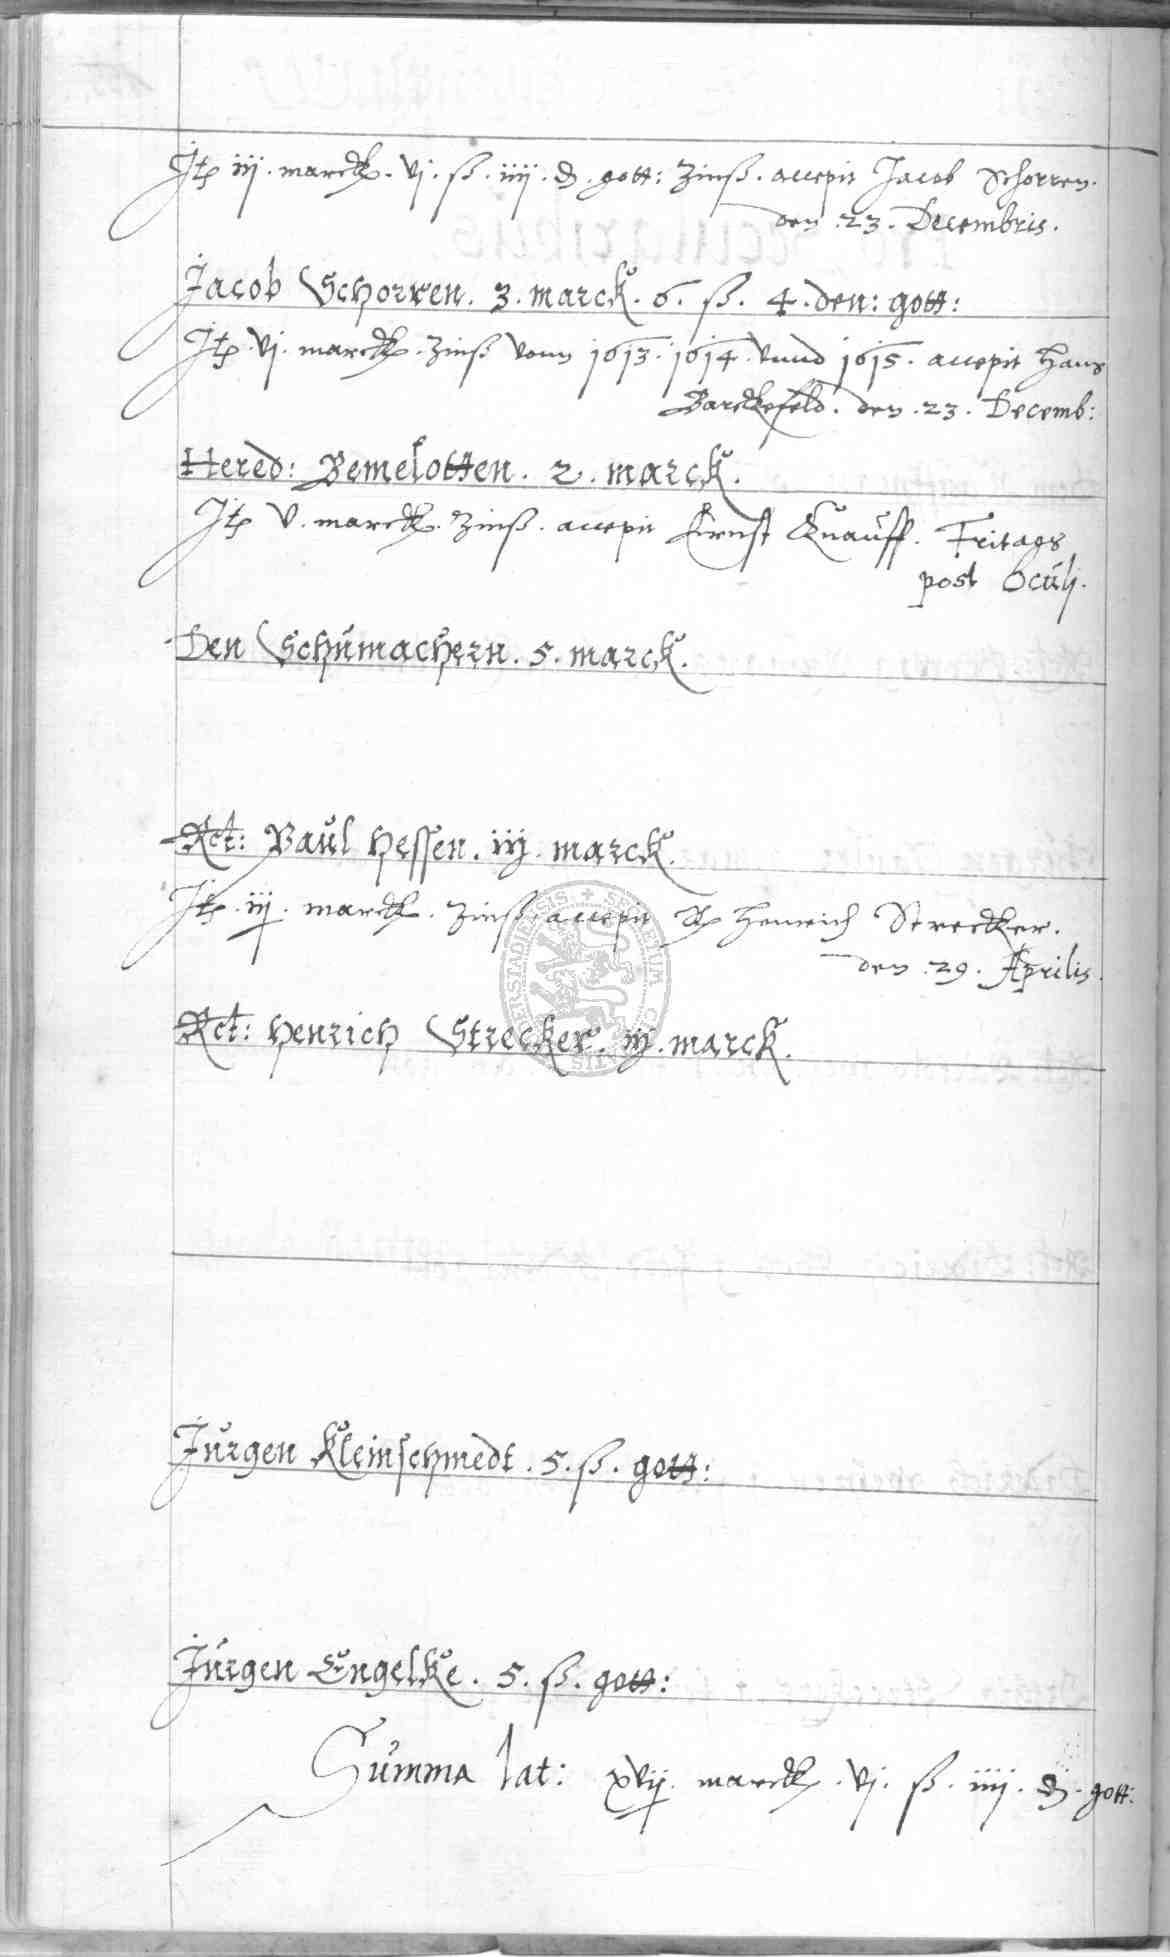 Itz iij. marck. vj. ß. iiij. d. gott: Zinß. accepit Jacob Schorren.
den .23. Decembris.
Jacob Schorren. 3. marck. 6. ß. 4. den: gott:
Itz vj. marck. Zinß vonn 1613. 1614. vnnd 1615. accepit Hans
Barckefeld. den .23. Decemb:
Hered: Bemelotten. 2. marck.
Itz v. marck. Zinß. accepit Ernst Knauff. Fritags
post Oculj.
Den Schumachern. 5. marck.
Rct: Paul Hessen. iij. marck.
Itz iij. marck. Zinß. accepit Henrich Strecker.
den .29. Aprilis.
Rct: Henrich Strecker. iij. marck.
Jurgen Kleinschmedt. 5. ß. gott:
Jurgen Engelke. 5. ß. gott:
Summa lat: xvij. marck. vj. ß. iiij. d. gott: